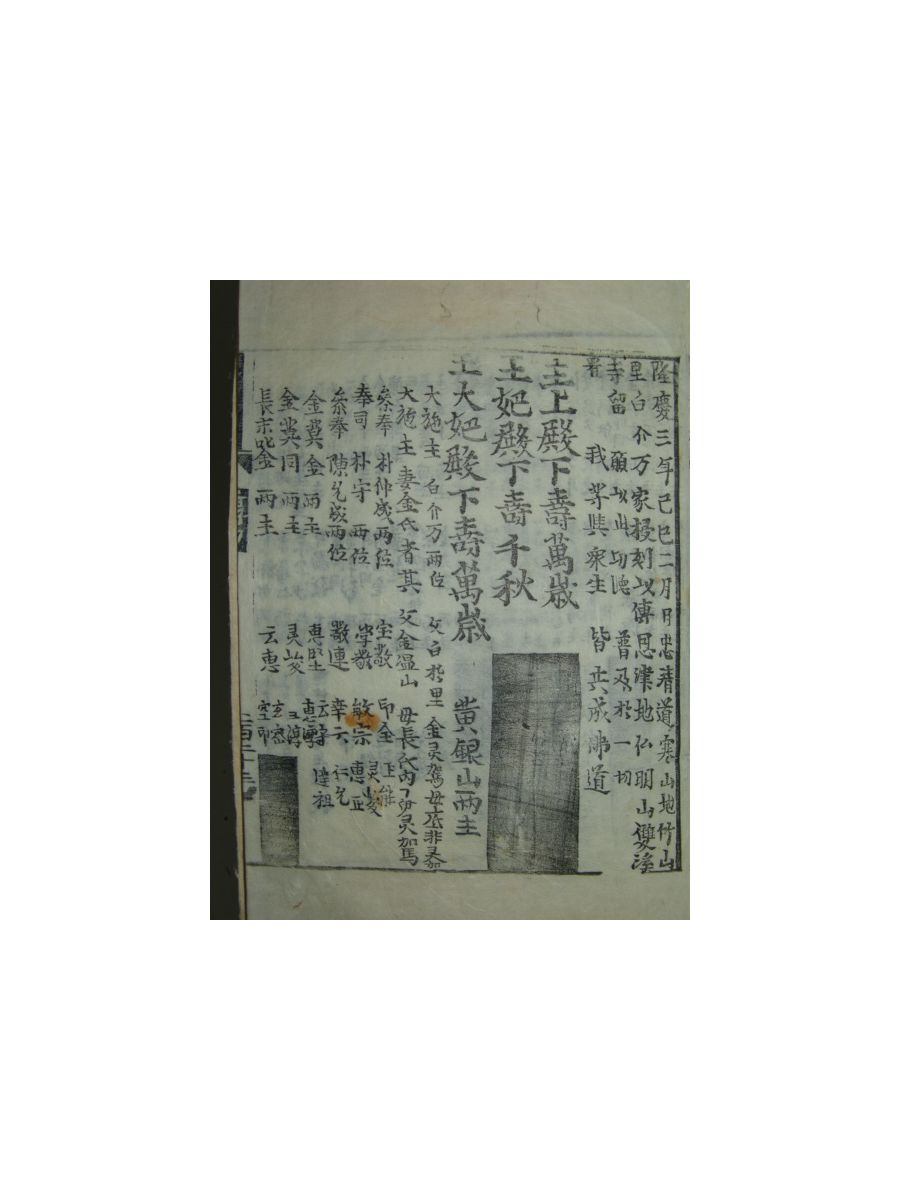 隆慶三年己巳二月日忠淸道寒山地竹山
里白介万家授刻以傳恩津地仏明山雙溪
寺留 願以此功德 普及於一切
者 我等與衆生 皆共成佛道
主上殿下壽萬歲
王妃殿下壽千秋
王大妃殿下壽萬歲 黄銀山兩主
大施主 白介万兩位 父白於里 金灵駕 母底非灵加
大施主 妻金氏者其 父金溫山 母長氏內 灵加馬
叅奉 朴仲成兩位 宝敬 印全
奉司 朴守 兩位 學敬 敏宗 惠正 灵峻
叅奉 陳允成兩位 敬連 幸六 仁允
金冀金 兩主 惠堅 云
金冀同 兩主 灵峻
長末叱金 兩主 云惠 空印